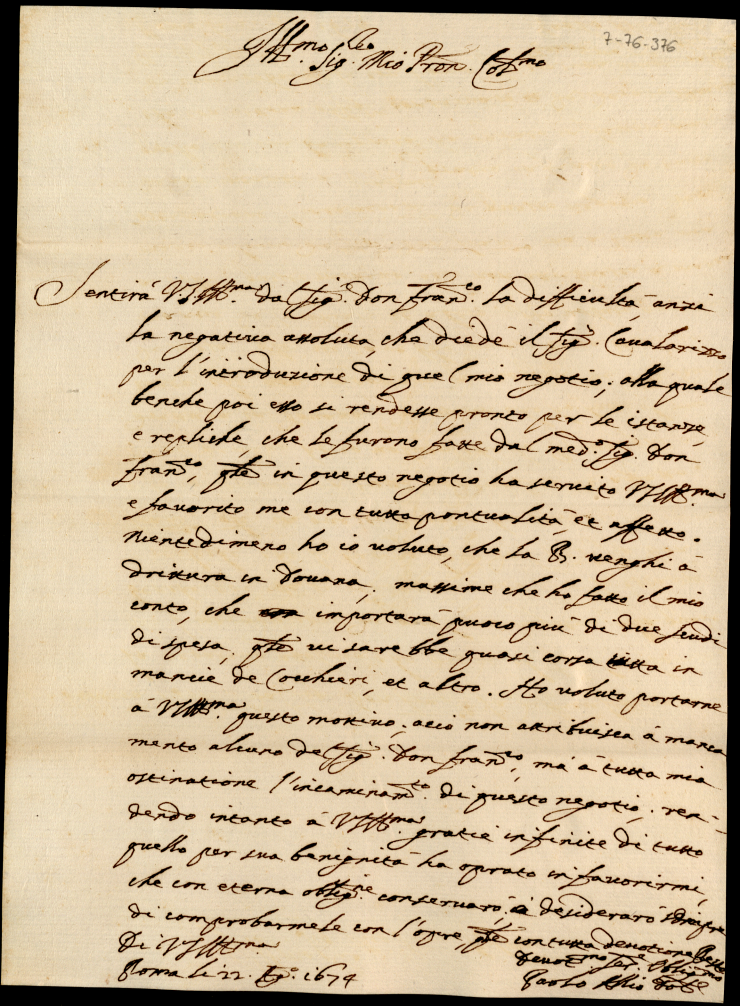 7-76-376
Ill.mo Sig.re Mio Pron. Col.mo
Sentirà V.S.Ill.ma da Sig.r Don Fran.co la difficultà, anzi
la negativa assoluta, che diede il Sig.r Cavalarizzo
per l'introduzione di quel mio negotio; alla quale
benche poi esso si rendesse pronto per le istanze,
e repliche, che le furono fatte dal med.o Sig.r Don
Fran.co, in questo negotio ha servito V.S.Ill.ma
e favorito me con tutta pontualità, et affetto.
Nientedimeno ho io voluto, che la B. venghi à
drittura in Douana, massime che ho fatto il mio
conto, che importarà puoco più di due scudi
di spesa, vi sarebbe quasi corsa tutta in
mancie de Cocchieri, et altro. Ho voluto portarne
à V.S.Ill.ma questo mottivo, aciò non attribuisca à manca
mento alcuno del Sig.r Don Fran.co, mà à tutta mia
ostinatione l'incaminam.to di questo negotio, ren-
dendo intanto à V.S.Ill.ma gratie infinite di tutto
quello per sua benignità ha oprato in favorirmi,
che con eterna oblig.ne conservarò, e desiderarò sempre
di comprobarmele con l'opre, con tutta devotione
Di V.S.Ill.ma
Devot.mo Ser. Oblig.mo
Roma li 22 1674
Paolo